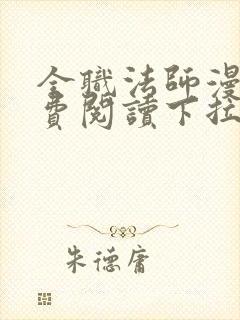 全職法師漫
費閱讀下拉
朱德庸